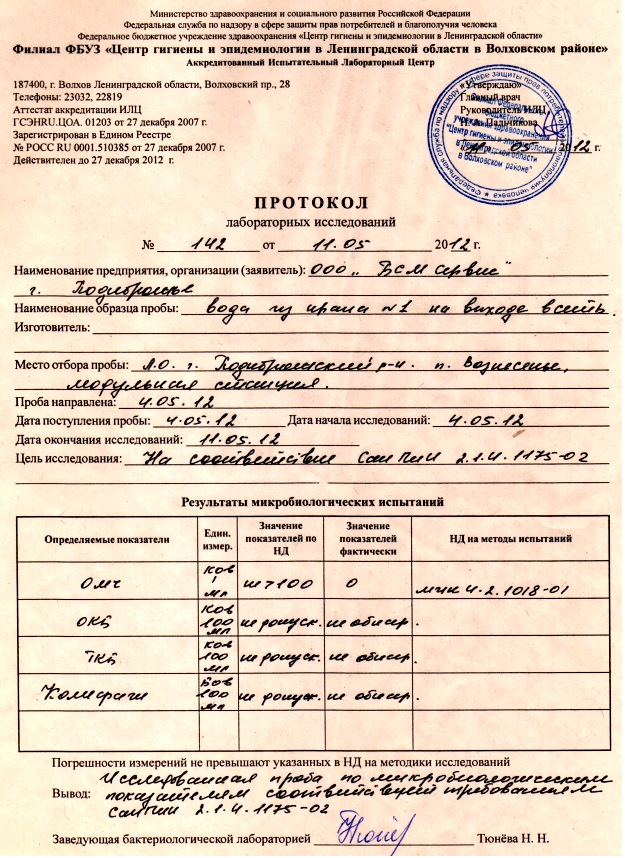 Министерство здравоохранения и социального развития Российской Федерации
Федеральная служба по надзору в сфере защиты прав потребителей и благополучия человека
Федеральное бюджетное учреждение здравоохранения «Центр гигиены и эпидемиологии в Ленинградской области»
Филиал ФБУЗ «Центр гигиены и эпидемиологии в Ленинградской области в Волховском районе»
Аккредитованный Испытательный Лабораторный Центр
187400, г. Волхов Ленинградской области, Волховский пр., 28
Телефоны: 23032, 22819
Аттестат аккредитации ИЛЦ
ГСЭНRU.ЦОА. 01203 от 27 декабря 2007 г.
Зарегистрирован в Едином Реестре
№ РОСС RU 0001.510385 от 27 декабря 2007 г.
Действителен до 27 декабря 2012 г.
«Утверждаю»
Главный врач
Руководитель ИЛЦ
Пальчикова
05 2012 г.
"Центр гигиены и эпидемиологии
в Ленинградской области
в Волховском районе"
ПРОТОКОЛ
лабораторных исследований
№ 142 от 11.05 2012 г.
Наименование предприятия, организации (заявитель): ООО „БСМ Сервис"
г. Подпорожье
Наименование образца пробы: вода из крана №1 на выходе в сеть.
Изготовитель:
Место отбора пробы: Л.О. г. Подпорожский р-н. п. Вознесенье,
модульная станция.
Проба направлена: 4.05.12
Дата поступления пробы: 4.05.12 Дата начала исследований: 4.05.12
Дата окончания исследований: 11.05.12
Цель исследования: На соответствие СанПиН 2.1.4.1175-02
Результаты микробиологических испытаний
Определяемые показатели Един. измер. Значение показателей по НД Значение показателей фактически НД на методы испытаний
ОМЧ КОЕ 1 мл не >100 0 МУК 4.2.1018-01
ОКБ КОЕ 100 мл не допуск. не обнар.
ТКБ КОЕ 100 мл не допуск. не обнар.
Колифаги БОЕ 100 мл не допуск. не обнар.
Погрешности измерений не превышают указанных в НД на методики исследований
Вывод: Исследованная проба по микробиологическим
показателям соответствует требованиям
СанПиН 2.1.4.1175-02
Заведующая бактериологической лабораторией Тюнёва Н. Н.